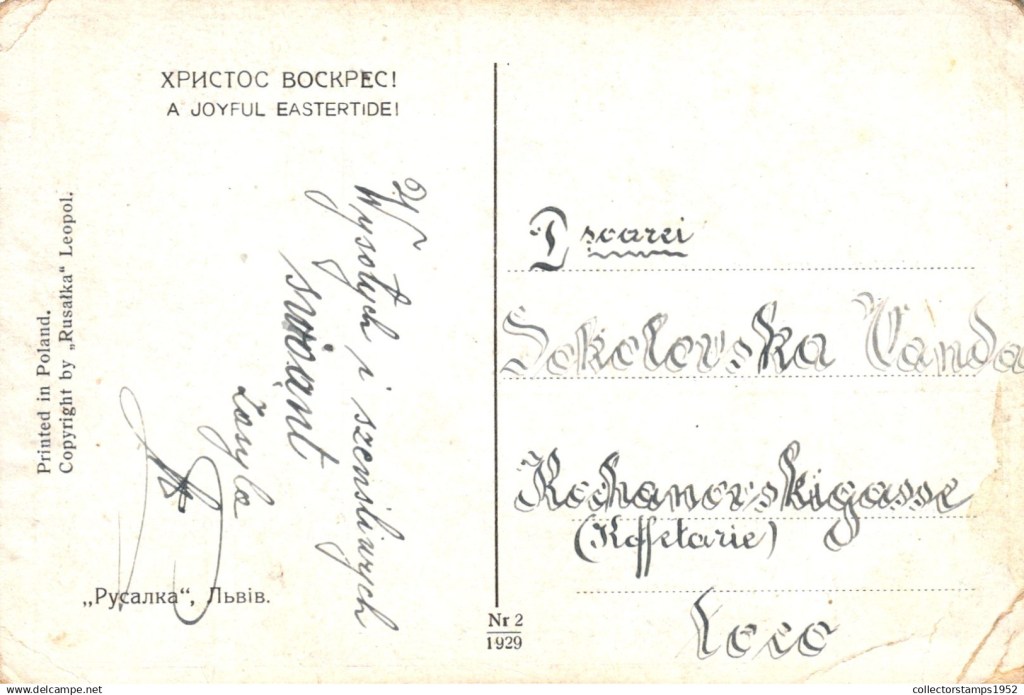 ХРИСТОС ВОСКРЕС!
A JOYFUL EASTERTIDE!
Printed in Poland.
Copyright by „Rusałka“ Leopol.
Wysołych i szensliwych
swiąnt
„Русалка“, Львів.
Nr 2
1929
Dsoarei
Sokolovska Vanda
Kochanovskigasse
(Koffetarie)
Loco
delcampe.net
collectorstamps1952